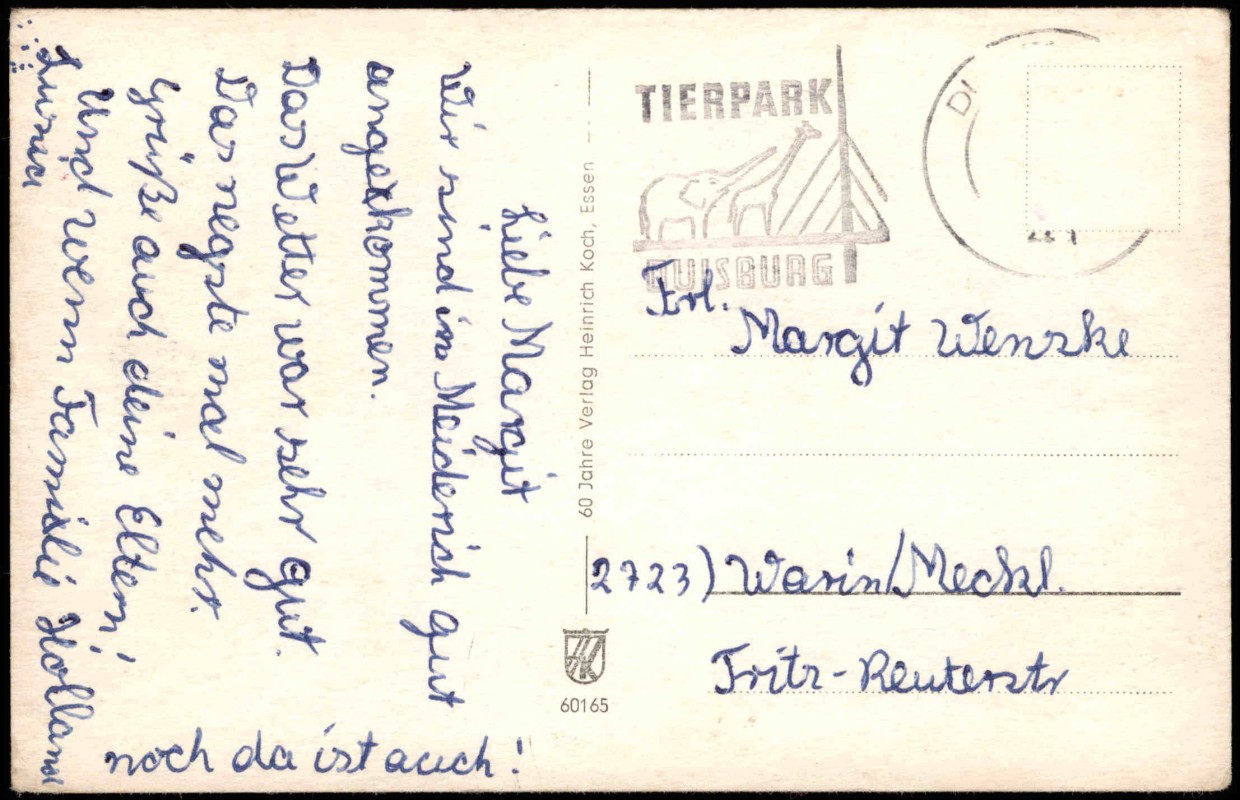 Liebe Margit
Wir sind in Meiderich gut
angekommen.
Das Wetter war sehr gut.
Das negste mal mehr.
Grüße auch deine Eltern!
Und wenn Familie Holland
noch da ist auch!
60 Jahre Verlag Heinrich Koch, Essen
HK
60165
TIERPARK
DUISBURG
Frl.
Margit Wenzke
2723) Warin/Meckl.
Fritz-Reuterstr